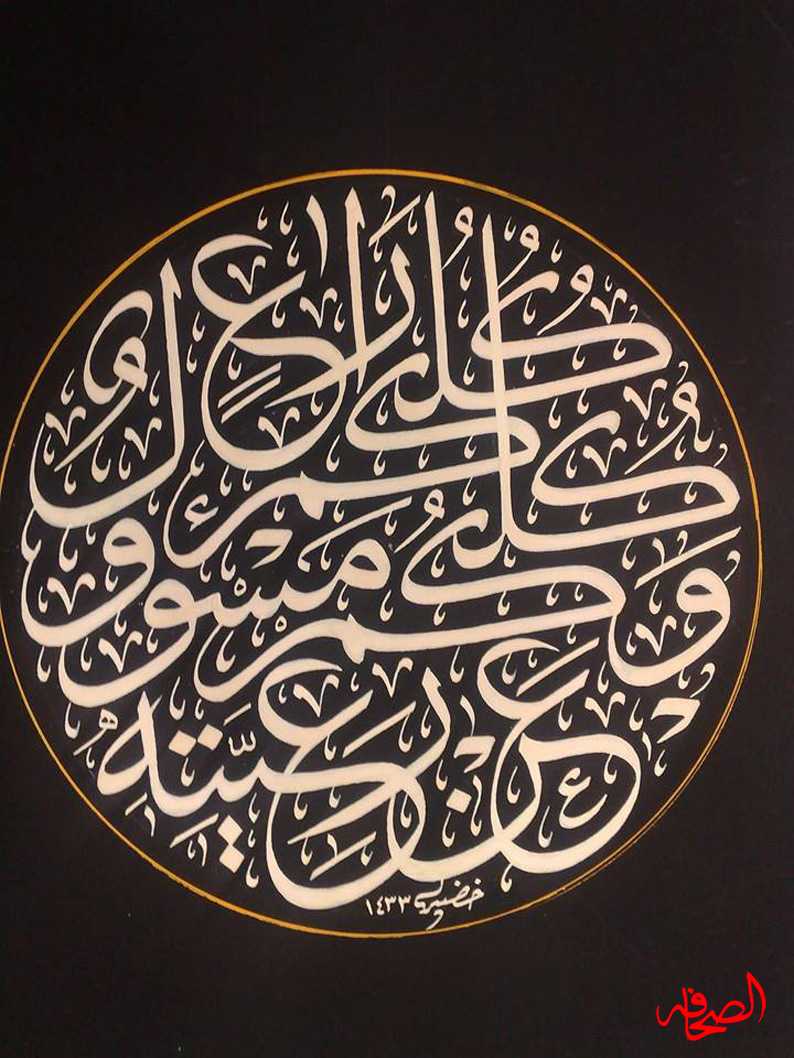 كُلُّكُمْ رَاعٍ
وَكُلُّكُمْ مَسْؤُولٌ
عَنْ رَعِيَّتِهِ
خضير ١٤٣٣
الصحافه